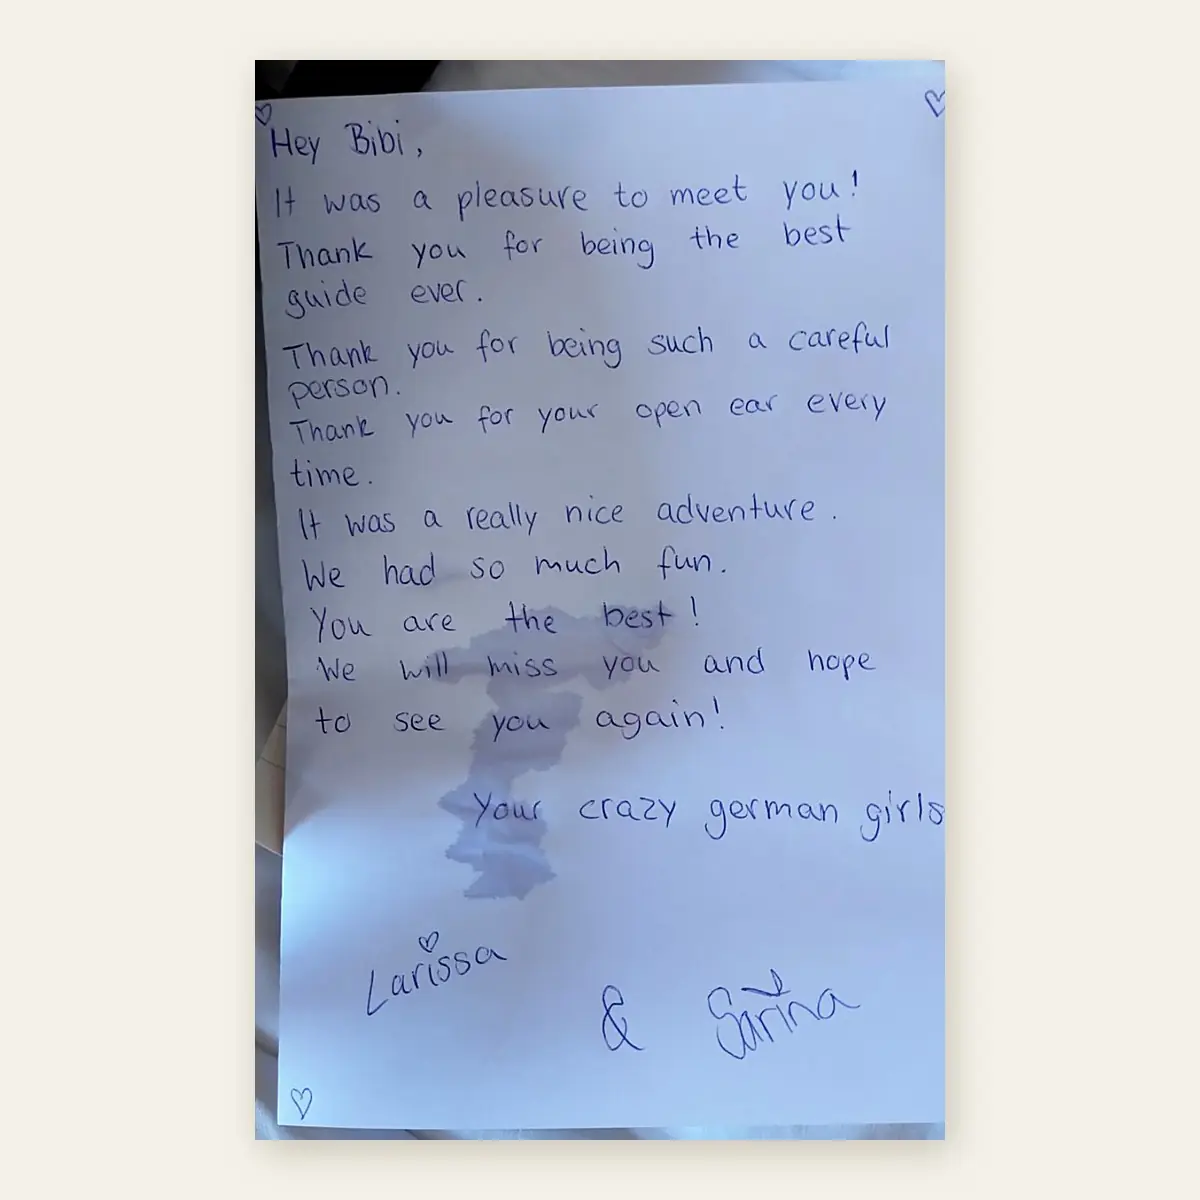 Hey Bibi,
It was a pleasure to meet you!
Thank you for being the best
guide ever.
Thank you for being such a careful
person.
Thank you for your open ear every
time.
It was a really nice adventure.
We had so much fun.
You are the best!
We will miss you and hope
to see you again!
Your crazy german girls
Larissa
& Sarina